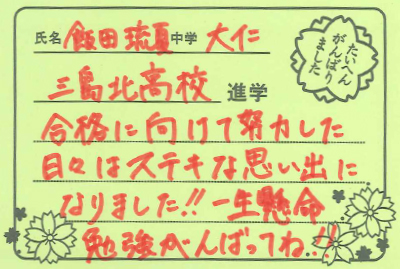 氏名 飯田 琉夏 中学 大仁
三島北高校 進学
たいへん
がんばり
ました
合格に向けて努力した
日々はステキな思い出に
なりました!! 一生懸命
勉強がんばってね!!